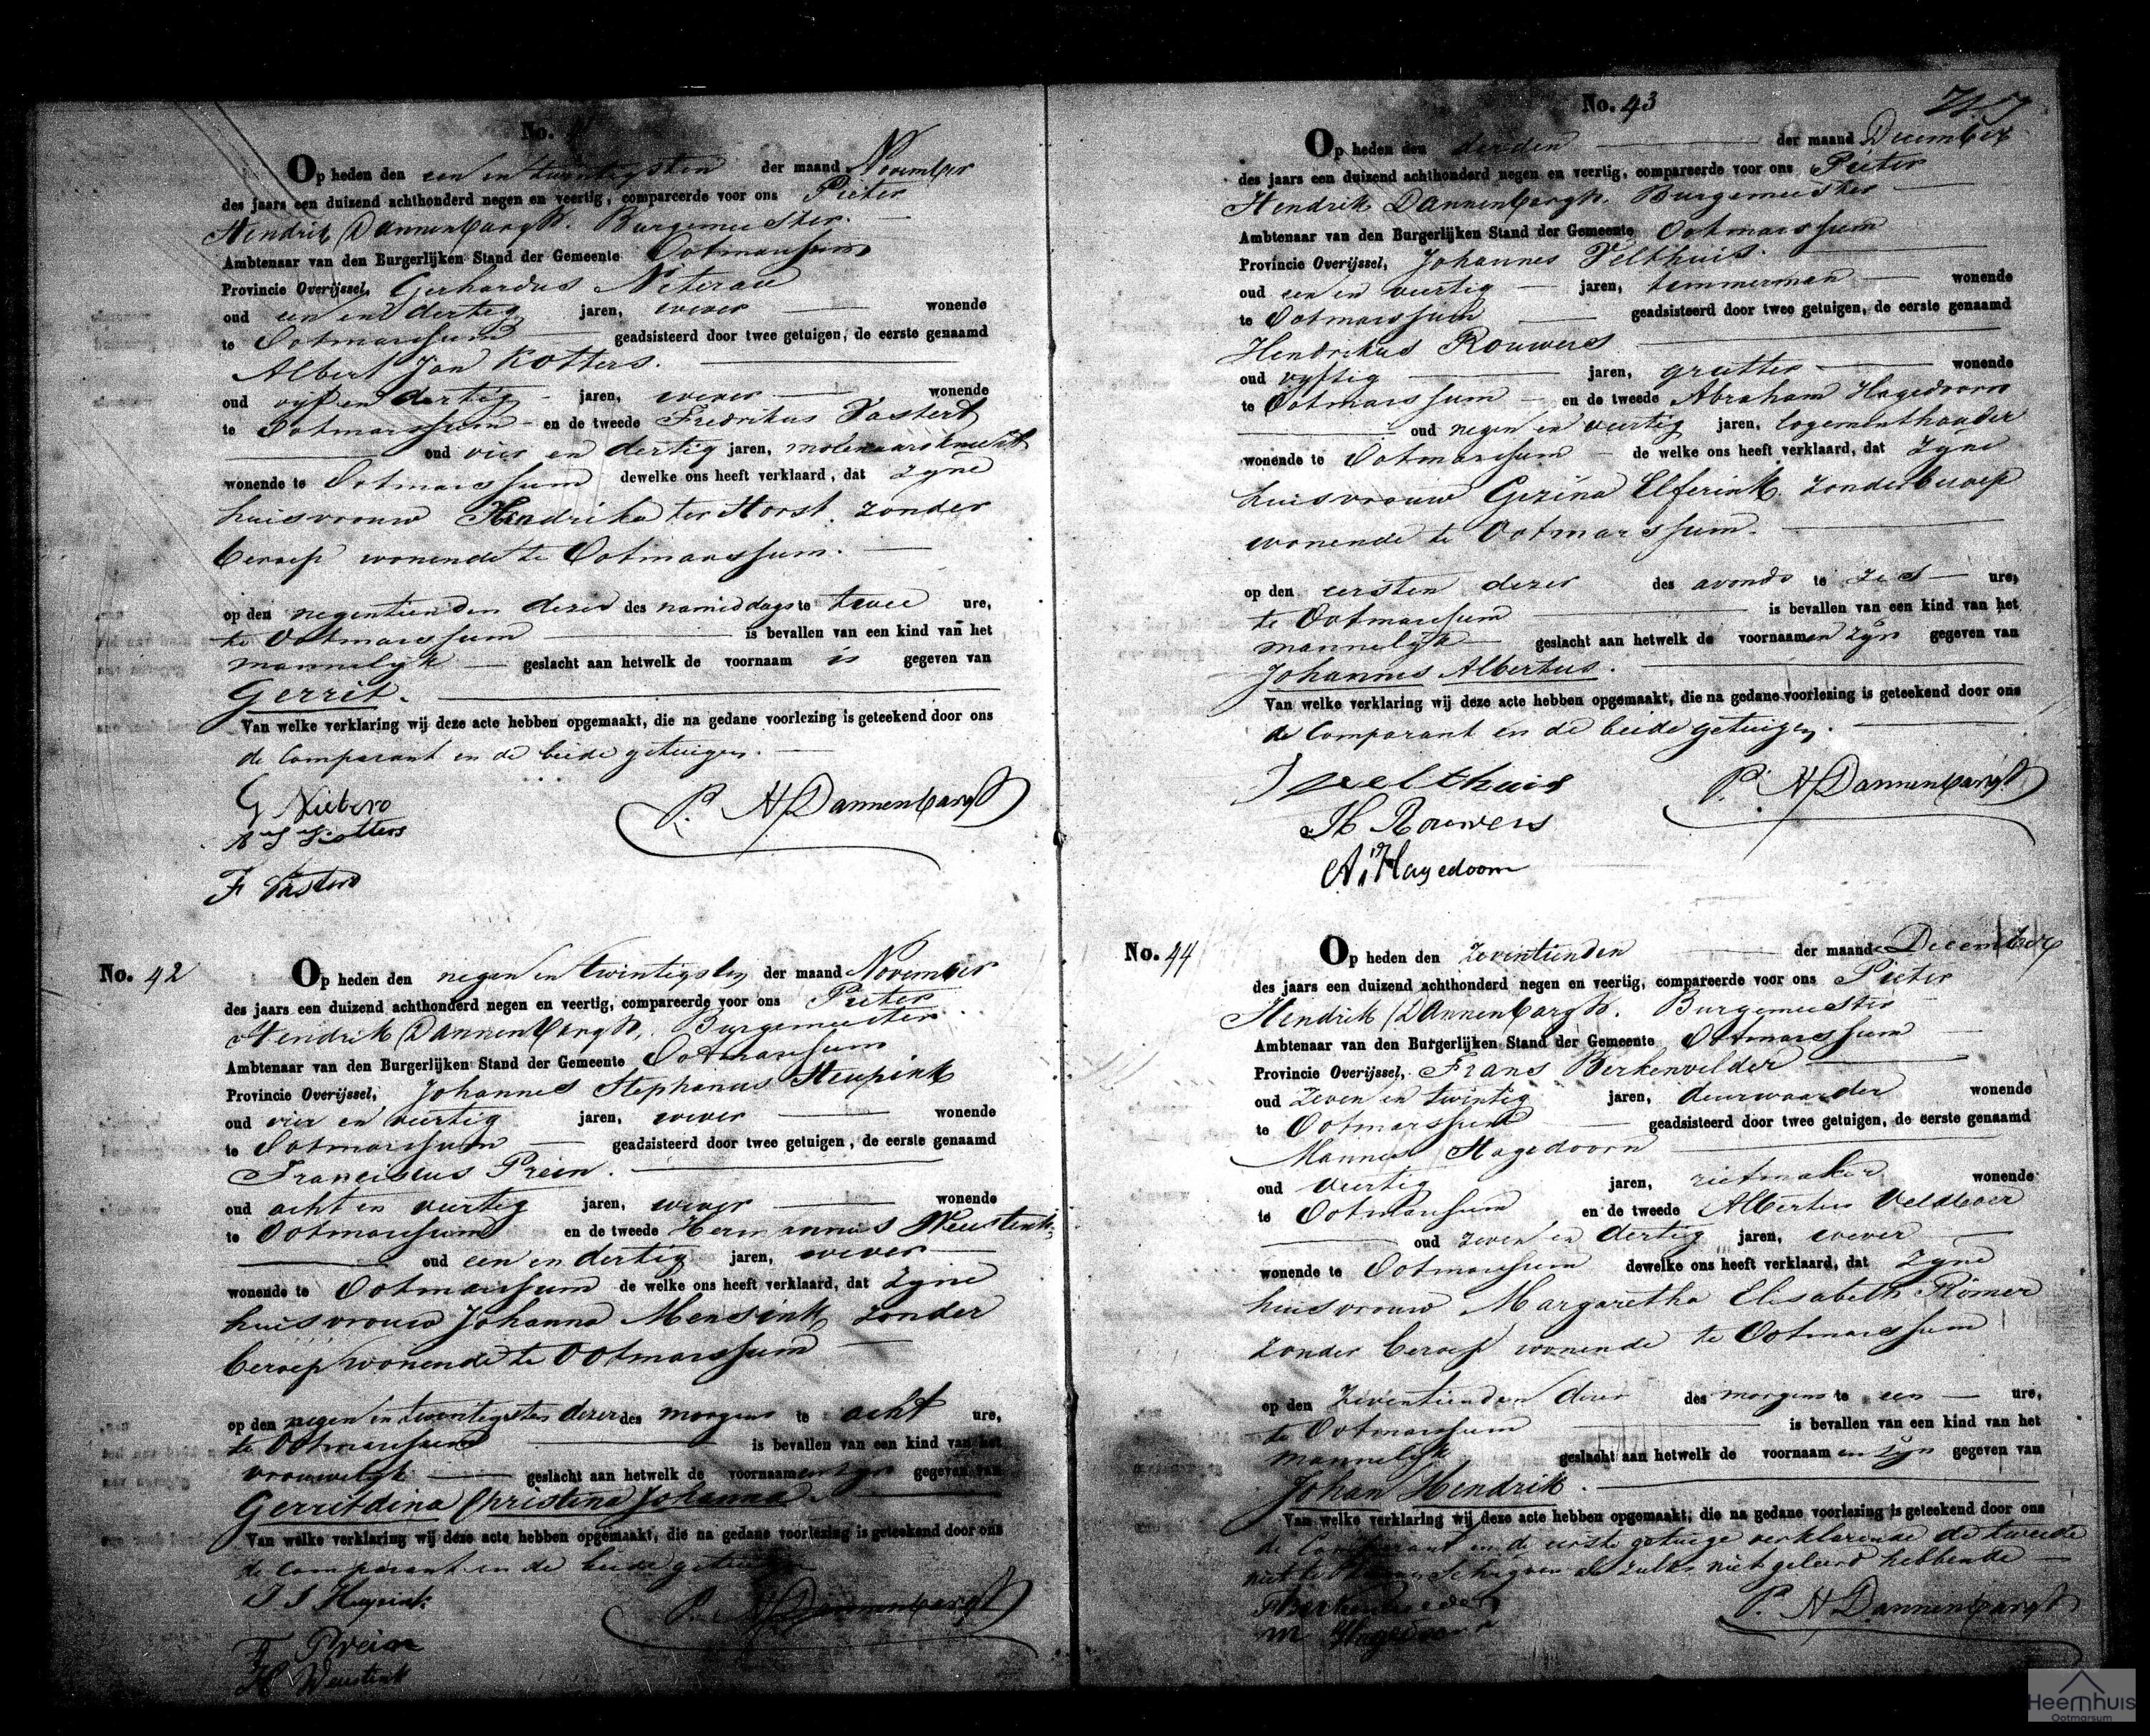 No. 41
Op heden den een en twintigsten der maand November
des jaars een duizend achthonderd negen en veertig, compareerde voor ons Pieter
Hendrik Dannenbargh. Burgemeester.
Ambtenaar van den Burgerlijken Stand der Gemeente Ootmarssum
Provincie Overijssel, Gerhardus
oud een en dertig jaren, wever wonende
te Ootmarssum geadsisteerd door twee getuigen, de eerste genaamd
Albert Jan Kotters.
oud vijf en dertig jaren, wever wonende
te Ootmarssum en de tweede Fredrikus Vastert
oud vier en dertig jaren, molenaarsknecht
wonende te Ootmarssum dewelke ons heeft verklaard, dat zyne
huisvrouw Hendrika ter Horst. zonder
beroep wonende te Ootmarssum.
op den negentienden dezer des namiddags te twee ure,
te Ootmarssum is bevallen van een kind van het
mannelijk geslacht aan hetwelk de voornaam is gegeven van
Gerrit.
Van welke verklaring wij deze acte hebben opgemaakt, die na gedane voorlezing is geteekend door ons
de Comparant en de beide getuigen.
G
P. H Dannenbargh
Kotters
F
No. 42
Op heden den negen en twintigsten der maand November
des jaars een duizend achthonderd negen en veertig, compareerde voor ons Pieter
Hendrik Dannenbargh, Burgemeester.
Ambtenaar van den Burgerlijken Stand der Gemeente Ootmarssum
Provincie Overijssel, Johannes Stephanus Heupink
oud vier en veertig jaren, wever wonende
te Ootmarssum geadsisteerd door twee getuigen, de eerste genaamd
Franciscus Prein.
oud acht en veertig jaren, wever wonende
te Ootmarssum en de tweede Hermannus Weustink
oud een en dertig jaren, wever
wonende te Ootmarssum de welke ons heeft verklaard, dat zyne
huisvrouw Johanna Mensink zonder
beroep wonende te Ootmarssum
op den negen en twintigsten dezer des morgens te acht ure,
te Ootmarssum is bevallen van een kind van het
vrouwelijk geslacht aan hetwelk de voornaamen zyn gegeven van
Gerritdina Christina Johanna.
Van welke verklaring wij deze acte hebben opgemaakt, die na gedane voorlezing is geteekend door ons
de Comparant en de beide getuigen
J S Heupink
P. H Dannenbargh
F Prein
H Weustink
No. 43
Op heden den derden der maand December
des jaars een duizend achthonderd negen en veertig, compareerde voor ons Pieter
Hendrik Dannenbargh. Burgemeester
Ambtenaar van den Burgerlijken Stand der Gemeente Ootmarssum
Provincie Overijssel, Johannes Velthuis.
oud een en veertig jaren, temmerman wonende
te Ootmarssum geadsisteerd door twee getuigen, de eerste genaamd
Hendrikus Rouwers
oud vyftig jaren, grutter wonende
te Ootmarssum en de tweede Abraham Hagedoorn
oud negen en veertig jaren, logementhouder
wonende te Ootmarssum de welke ons heeft verklaard, dat zyne
huisvrouw Gezina Elferink. zonder beroep
wonende te Ootmarssum.
op den eersten dezer des avonds te zes ure,
te Ootmarssum is bevallen van een kind van het
mannelijk geslacht aan hetwelk de voornaamen zyn gegeven van
Johannes Albertus.
Van welke verklaring wij deze acte hebben opgemaakt, die na gedane voorlezing is geteekend door ons
de Comparant en de beide getuigen.
J velthuis
P. H Dannenbargh
H Rouwers
A Hagedoorn
No. 44
Op heden den zeventienden der maand December
des jaars een duizend achthonderd negen en veertig, compareerde voor ons Pieter
Hendrik Dannenbargh. Burgemeester
Ambtenaar van den Burgerlijken Stand der Gemeente Ootmarssum
Provincie Overijssel, Frans Berkenvelder
oud zeven en twintig jaren, deurwaarder wonende
te Ootmarssum geadsisteerd door twee getuigen, de eerste genaamd
Mannes Hagedoorn
oud veertig jaren, rietmaker wonende
te Ootmarssum en de tweede Albertus Veldboer
oud zeven en dertig jaren, wever
wonende te Ootmarssum dewelke ons heeft verklaard, dat zyne
huisvrouw Margaretha Elisabeth Römer
zonder beroep wonende te Ootmarssum
op den zeventienden dezer des morgens te een ure,
te Ootmarssum is bevallen van een kind van het
mannelijk geslacht aan hetwelk de voornaamen zyn gegeven van
Johan Hendrik.
Van welke verklaring wij deze acte hebben opgemaakt, die na gedane voorlezing is geteekend door ons
de Comparant en de eerste getuige verklarende de tweede
niet te kunnen schryven als zulks niet geleerd hebbende
P. H Dannenbargh
M Hagedoorn
Heemhuis
Ootmarsum